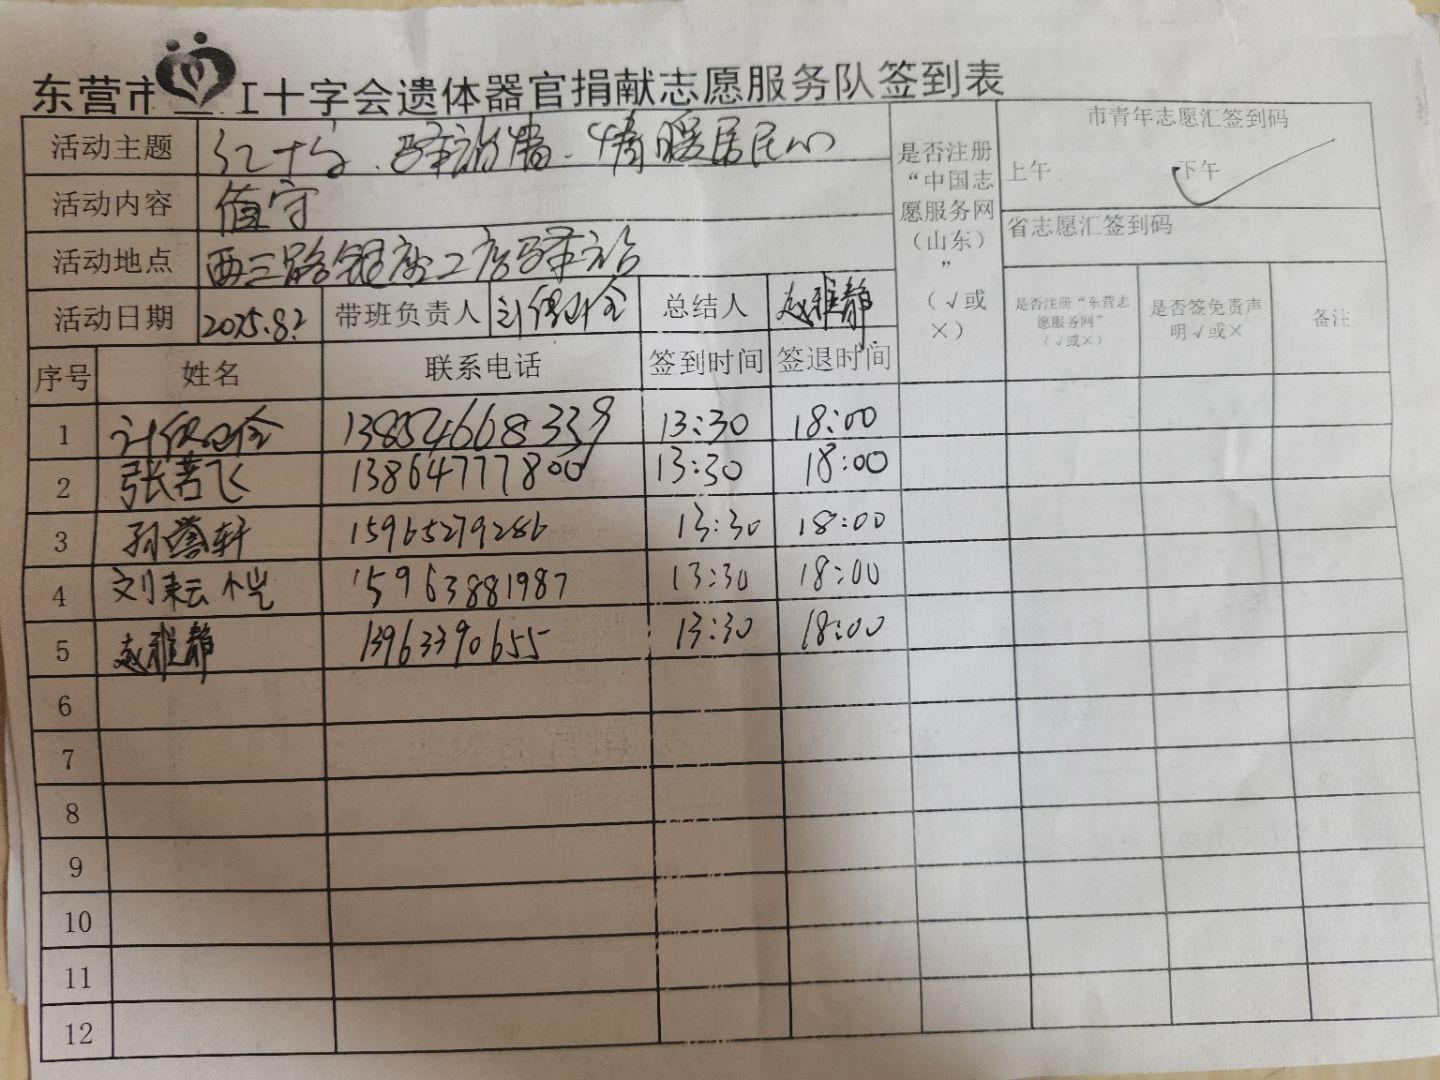 东营市 红十字会遗体器官捐献志愿服务队签到表
活动主题 红十字 驿站情 情暖居民心
活动内容 值守
活动地点 西三路银座工店驿站
活动日期 2025.8.2 带班负责人 总结人 赵雅静
是否注册“中国志愿服务网（山东）”（√或×）
市青年志愿汇签到码
上午 下午 √
省志愿汇签到码
是否注册“东营志愿服务网”（√或×） 是否签免责声明√或× 备注
序号 姓名 联系电话 签到时间 签退时间
1 13854668339 13:30 18:00
2 张若飞 13864777800 13:30 18:00
3 孙誉轩 15965279286 13:30 18:00
4 刘耘恺 15963881987 13:30 18:00
5 赵雅静 13963390655 13:30 18:00
6
7
8
9
10
11
12